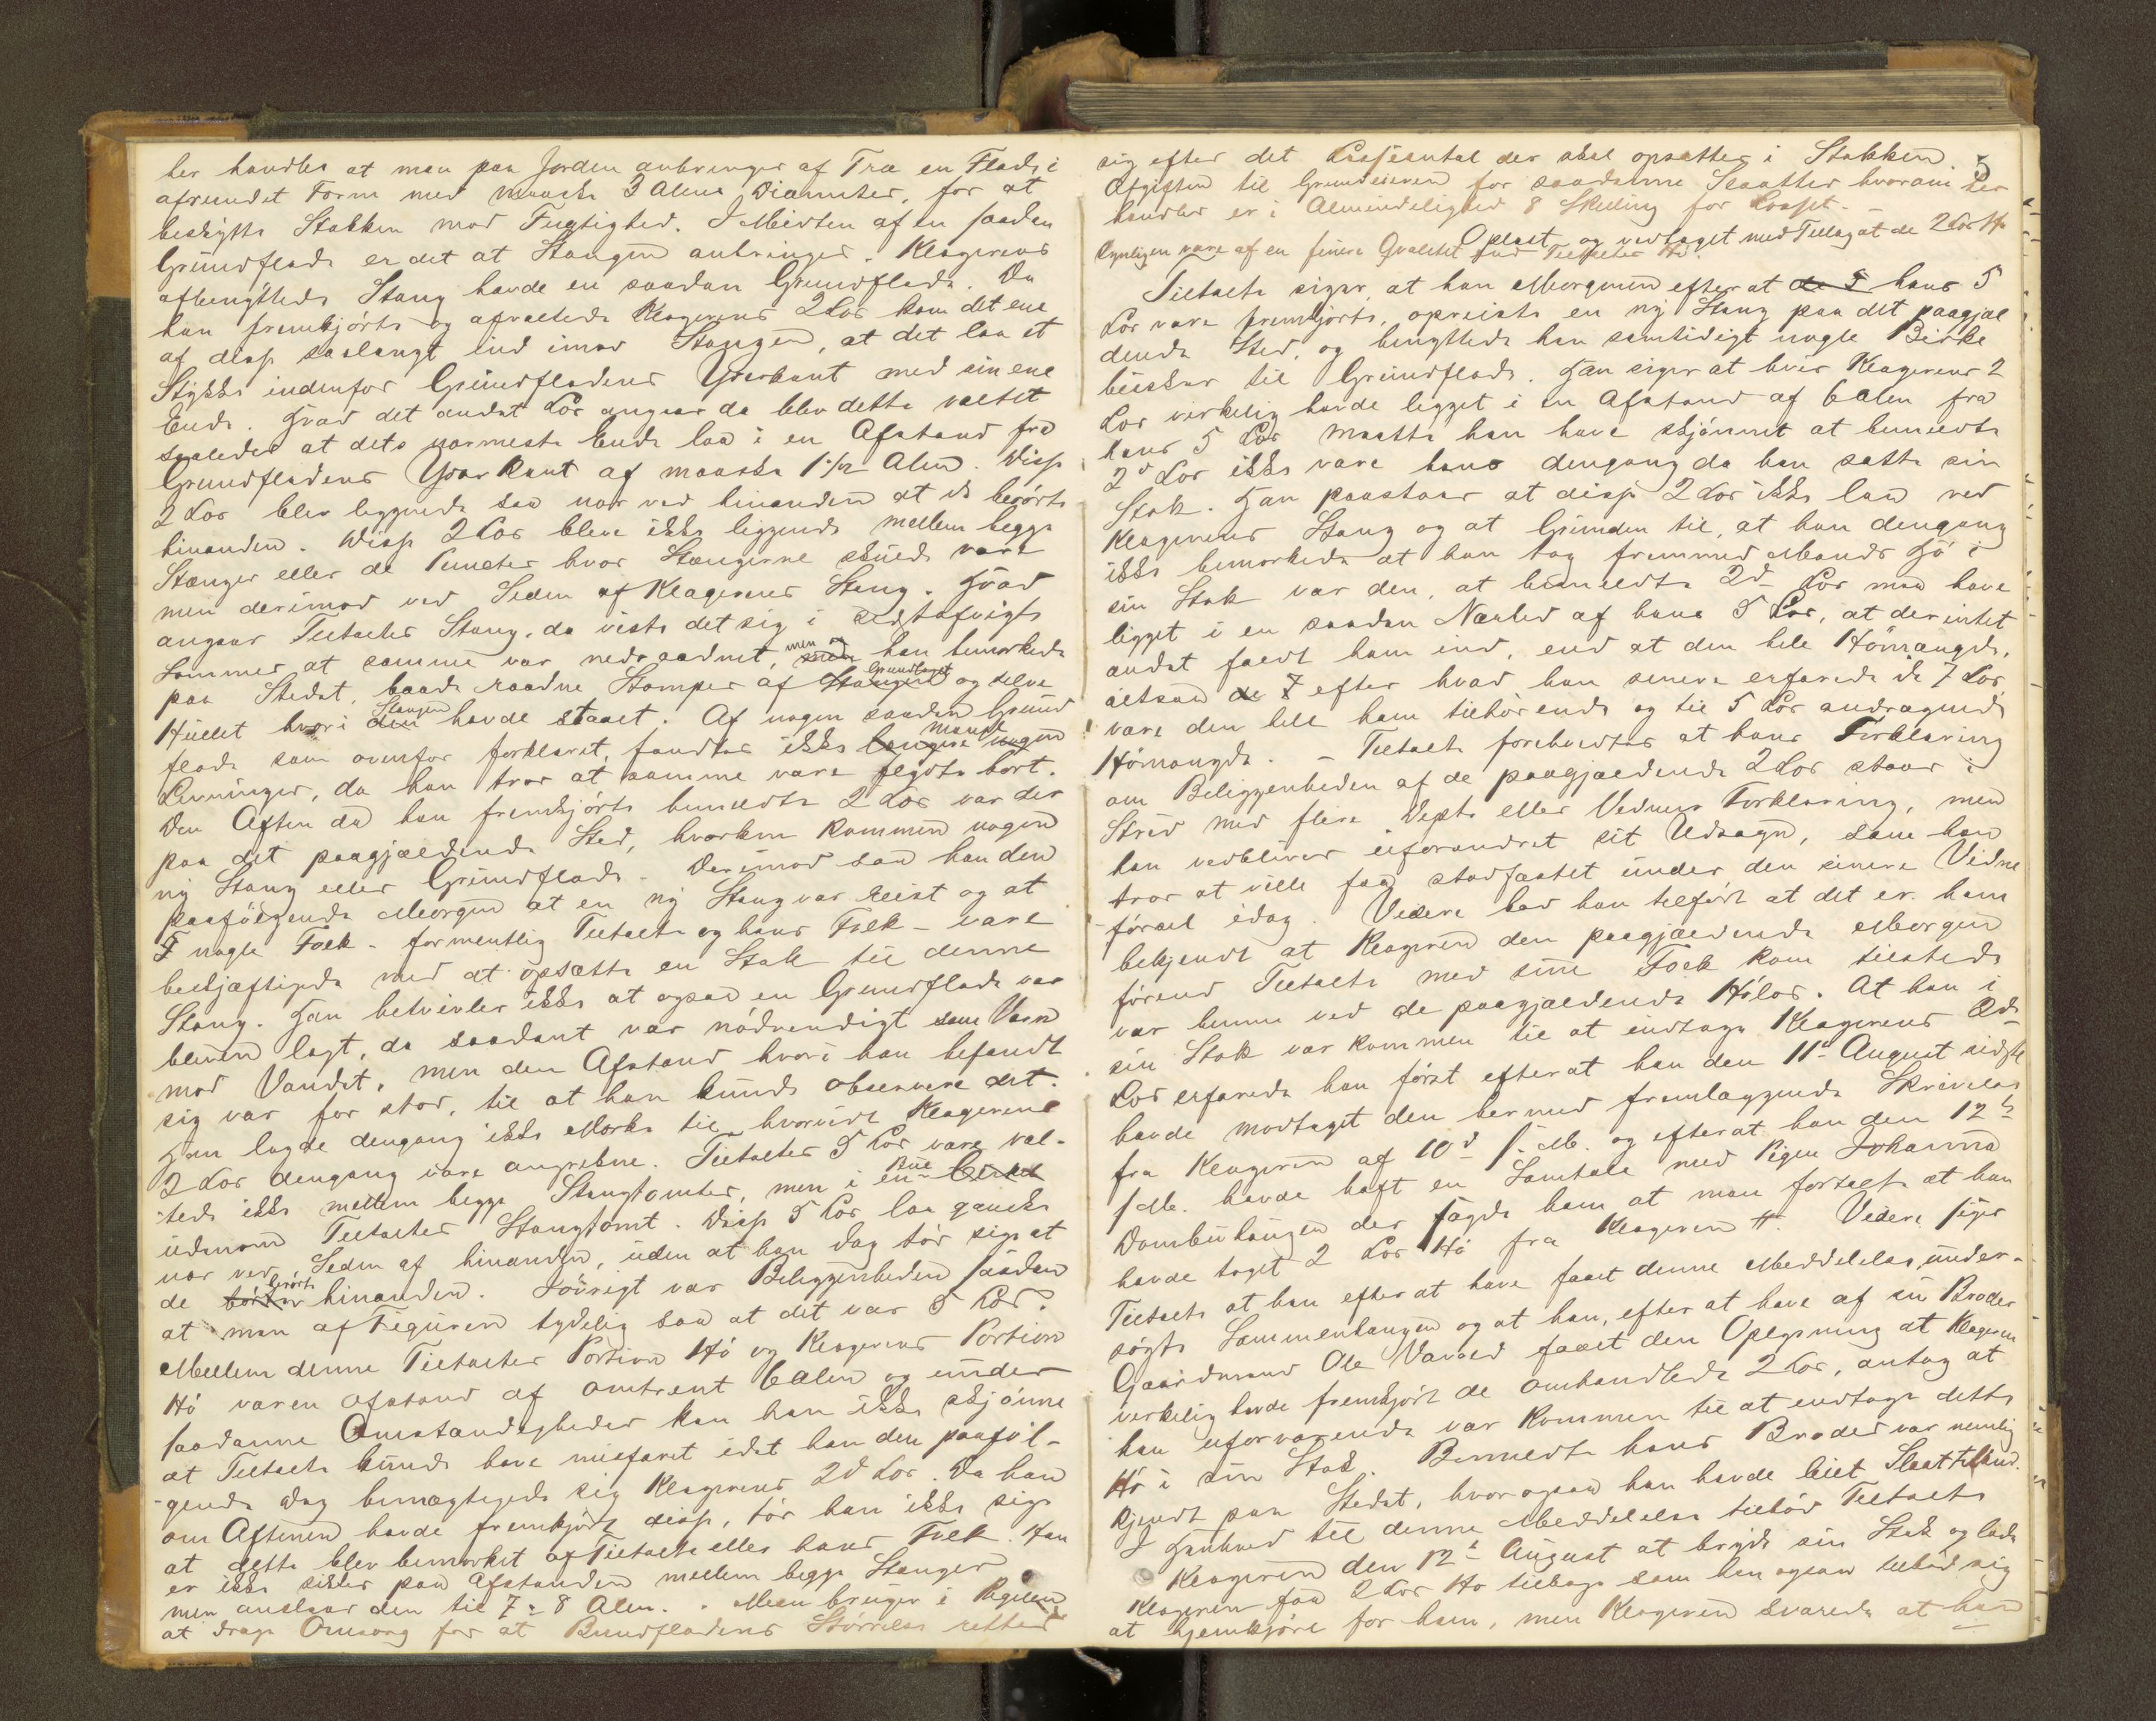 her handles at man paa Jorden anbringer af Træ en Flade i
afrundet Form med maaske 3 Alens Diameter, for at
beskytte Stakken mod Fugtighed. I Midten af en saadan
Grundflade er det at Stangen anbringes. Klagerens
afbenyttede Stang havde en saadan Grundflade. Da
han fremkjørte og afvæltede Klagerens 2 Lås kom det ene
af disse saalangt ind imod Stangen, at det laa et
Stykke indenfor Grundfladens Yderkant med sin ene
Ende. Hvad det andet Lås angaar da blev dette væltet
saaledes at dets nærmeste Ende laa i en Afstand fra
Grundfladens Yderkant af maaske 1 1/2 Alen. Disse
2 Lås blev liggende saa nær ved hinanden at de berørte
hinanden. Disse 2 Lås bleve ikke liggende mellem begge
Stænger eller de Puncter hvor Stængerne skulde være
men derimod ved Siden af Klagerens Stang. Hvad
angaar Tiltaltes Stang, da viste det sig i sidstafvigte
Sommer at samme var nedraadnet, men han bemærkede
paa Stedet, baade raadne Stomper af Grundlaget og selve
Hullet hvori Stangen havde staaet. Af nogen saadan Grund
flade som ovenfor forklaret, fandtes ikke mange
Levninger, da han tror at samme vare flydte bort.
Den Aften da han fremkjørte bemeldte 2 Lås var der
paa det paagjældende Sted, hverken kommen nogen
ny Stang eller Grundflade. Derimod saa han den
paafölgende Morgen at en ny Stang var reist og at
nogle Folk - formentlig Tiltalte og hans Folk - vare
beskjæftigede med at opsætte en Stak til denne
Stang. Han betvivler ikke at ogsaa en Grundflade var
bleven lagt, da saadant var nødvendigt som Værn
mod Vandet, men den Afstand hvori han befandt
sig var for stor, til at han kunde observere det.
Han lagde dengang ikke Mærke til hvorvidt Klagerens
2 Lås dengang vare angrebne. Tiltaltes 5 Lås vare væl-
tede ikke mellem begge Stangtomter, men i en Bue
udenom Tiltaltes Stangtomt. Disse 5 Lås laa ganske
nær ved Siden af hinanden, uden at han dog tør sige at
de berørte hinanden. Iøvrigt var Beliggenheden saadan
at man af Figuren tydelig saa at det var 5 Lås.
Mellem denne Tiltaltes Portion Hø og Klagerens Portion
Hø var en Afstand af omtrent 6 Alen og under
saadanne Omstændigheder kan han ikke skjønne
at Tiltalte kunde have misfaret idet han den paaføl-
gende Dag bemægtigede sig Klagerens 2de Lås. Da han
om Aftenen havde fremkjørt disse, tør han ikke sige
at dette blev bemærket af Tiltalte eller hans Folk. Han
er ikke sikker paa Afstanden mellem begge Stænger
men anslaar den til 7 a 8 Alen. Man bruger i Regelen
at drage Omsorg for at Bundfladens Størrelse retter
5
sig efter det Læsseantal der skal opsættes i Stakken.
Afgiften til Grundeieren for saadanne Slaatter hvorom her
handles er i Almindelighed 8 Skilling for Læsset.
Oplæst og vedtaget med Tillæg at de 2 Lås Hø
synligen vare af en finere Qvalitet end Tiltaltes Hø.
Tiltalte siger at han Morgenen efter at hans 5
Lås vare fremkjørte, opreiste en ny Stang paa det paagjæl
dende Sted, og benyttede han samtidigt nogle Birke
buskar til Grundflade. Han siger at hvis Klagerens 2
Lås virkelig havde ligget i en Afstand af 6 Alen fra
hans 5 Lås maatte han have skjønnet at bemeldte
2de Lås ikke vare hans dengang da han satte sin
Stak. Han paastaar at disse 2 Lås ikke laa ved
Klagerens Stang og at Grunden til, at han dengang
ikke bemærkede at han tog fremmed Mands Hø i
sin Stak var den, at bemeldte 2de Lås maa have
ligget i en saadan Nærhed af hans 5 Lås, at der intet
andet faldt ham ind, end at den hele Hömængde,
altsaa efter hvad han senere erfarede de 7 Lås,
vare den hele ham tilhørende og til 5 Lås andragende
Hömængde. - Tiltalte foreholdtes at hans Forklaring
om Beliggenheden af de paagjældende 2 Lås staar i
Strid med flere Depts eller Vidners Forklaring, men
han vedbliver uforandret sit Udsagn, som han
tror at ville faa stadfæstet under den senere Vidne
førsel idag. Videre bad han tilført at det er ham
bekjendt at Klageren den paagjældende Morgen
førend Tiltalte med sine Folk kom tilstede
var henne ved de paagjældende Hölås. At han i
sin Stak var kommen til at indtage Klagerens 2de
Lås erfarede han först efterat han den 11te August sidstl
havde modtaget den hermed fremlæggende Skrivelse
fra Klageren af 10de s. M. og efterat han den 12te
s M. havde haft en Samtale med Pigen Johanna
Dombuhaugen der sagde ham at man fortalte at han
havde taget 2 Lås Hö fra Klageren. Videre siger
Tiltalte at han efter at have faaet denne Meddelelse under-
søgte Sammenhængen og at han, efter at have af sin Broder
Gaardmand Ole Vavold faaet den Oplysning at Klageren
virkelig havde fremkjørt de omhandlede 2 Lås, antog at
han uforvarende var kommen til at indtage dette
Hö i sin Stak. Bemeldte hans Broder var nemlig
kjendt paa Stedet, hvor ogsaa han havde leiet Slaatteland.
I Henhold til denne Meddelelse tilbød Tiltalte
Klageren den 12te August at bryde sin Stak og lade
Klageren faa 2 Lås Hø tilbage som han ogsaa tilbød sig
at hjemkjøre for ham, men Klageren svarede at han